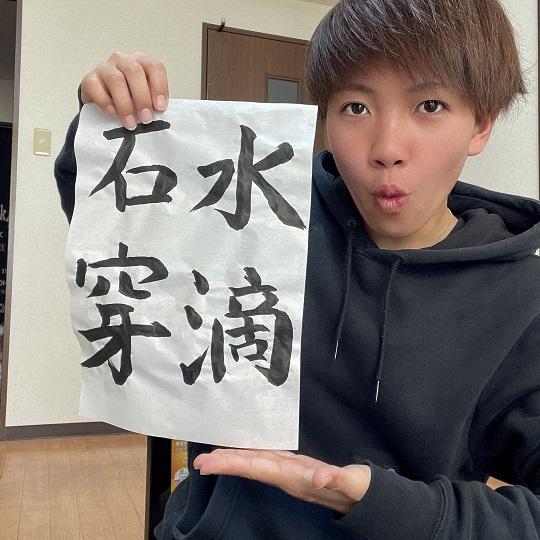 水滴
石穿